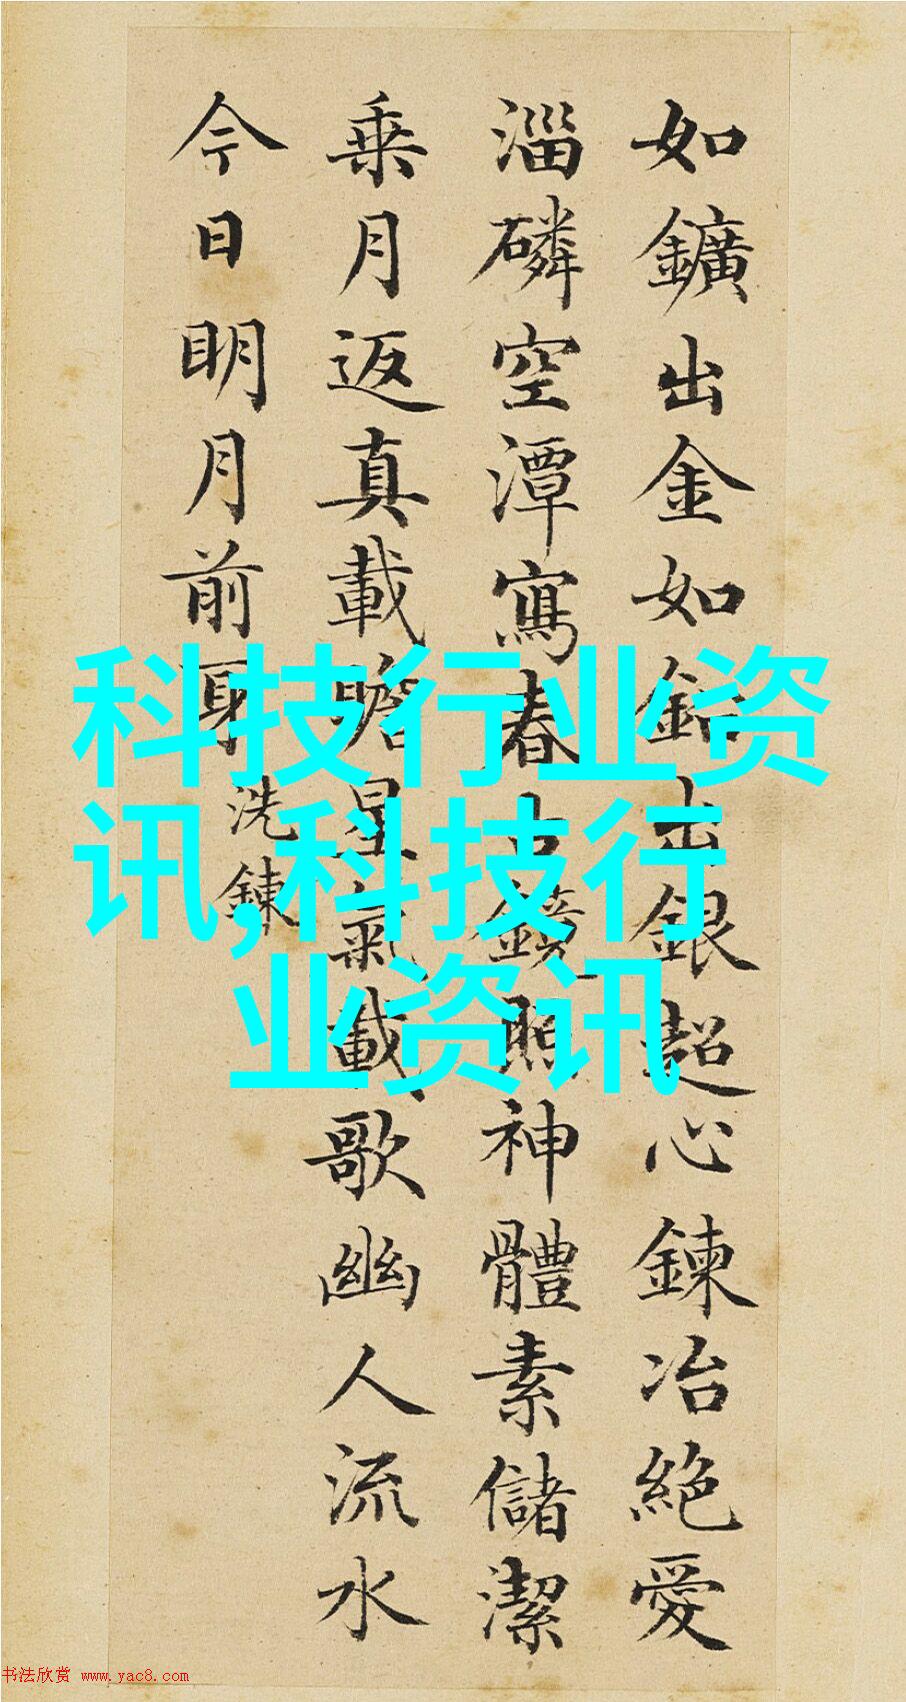 如鑛出金如鉛出銀超心鍊冶絶愛
淄磷空潭寫春古鏡照神體素儲潔
乗月返真載瞻星氣載歌幽人流水
今日明月前身
洗鍊
科技行业资
讯,科技行
业资讯
书法欣赏 www.yac8.com